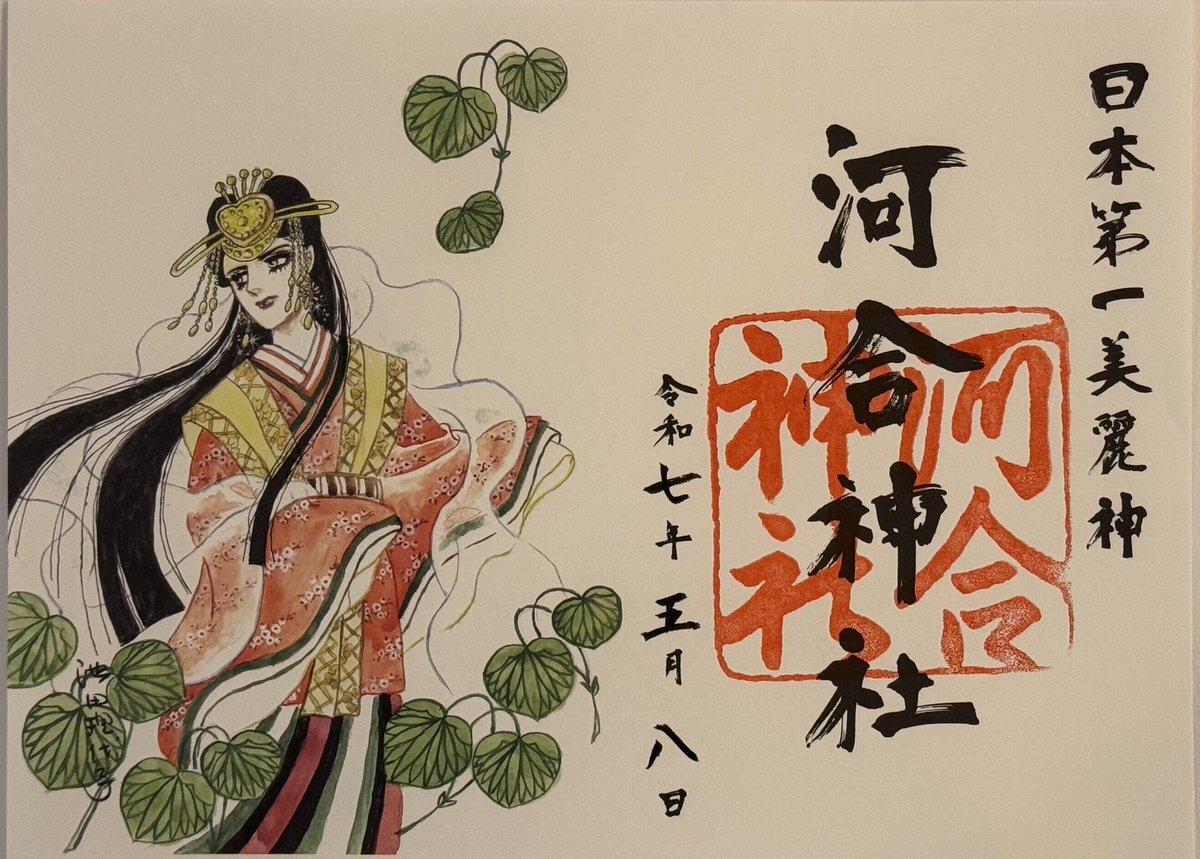 日本第一美麗神
河合神社
河合神社
令和七年五月八日
池田理代子